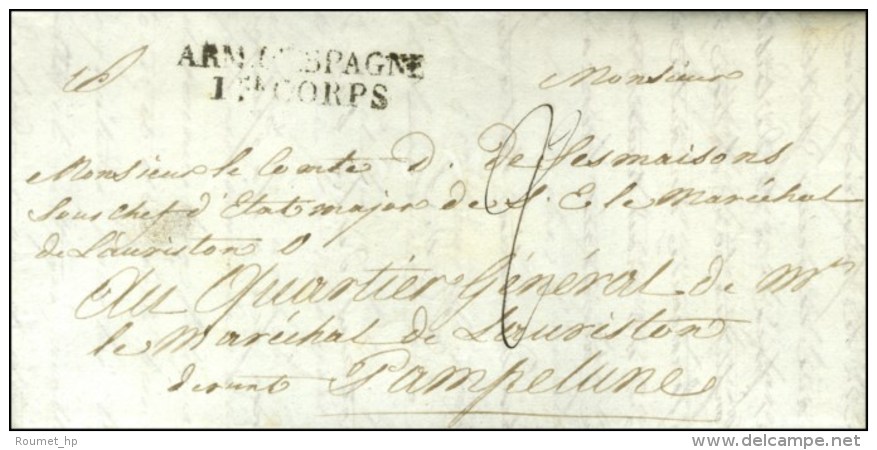 ARM. D'ESPAGNE
1er CORPS
Monsieur
Monsieur le Comte D. de Sesmaisons
Sous chef d'Etat major de S. E. le Maréchal
de Lauriston
Au Quartier Général de Mr
le Maréchal de Lauriston
devant Pampelune
Roumet_hp
delcampe.net